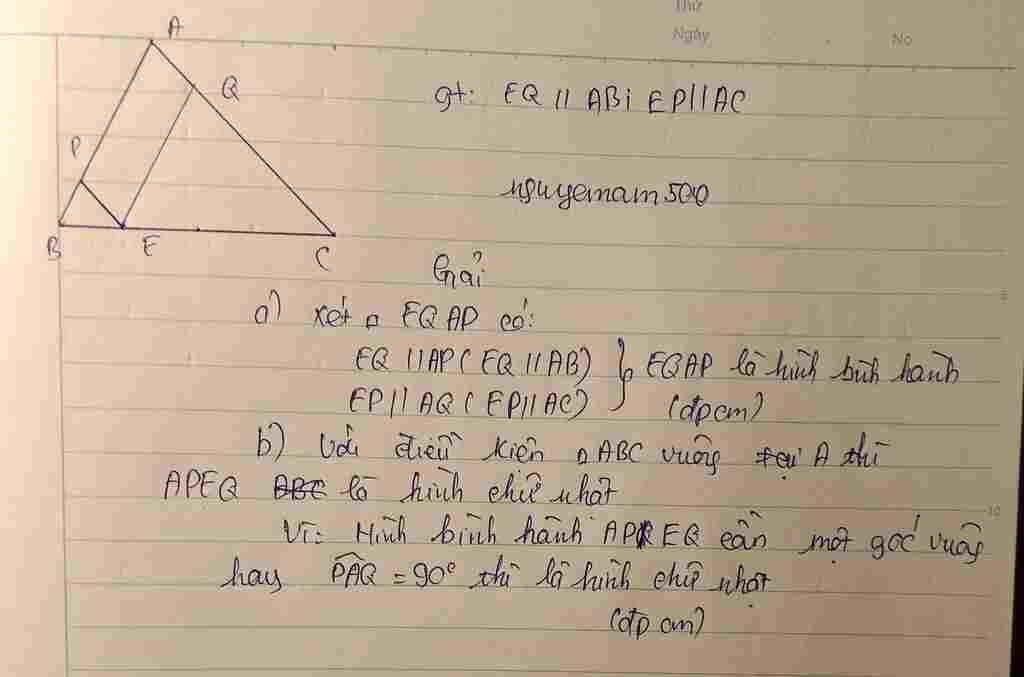 Thứ
Ngày
No
A
Q
P
B
E
C
gt: EQ // AB; EP // AC
nguyenam500
Giải
a) xét □ EQAP có:
EQ // AP (EQ // AB)
EP // AQ (EP // AC)
} EQAP là hình bình hành
(đpcm)
b) Với điều kiện △ABC vuông tại A thì
APEQ ABC là hình chữ nhật
Vì: Hình bình hành APEQ cần một góc vuông
hay PAQ = 90° thì là hình chữ nhật
(đpcm)
5
10